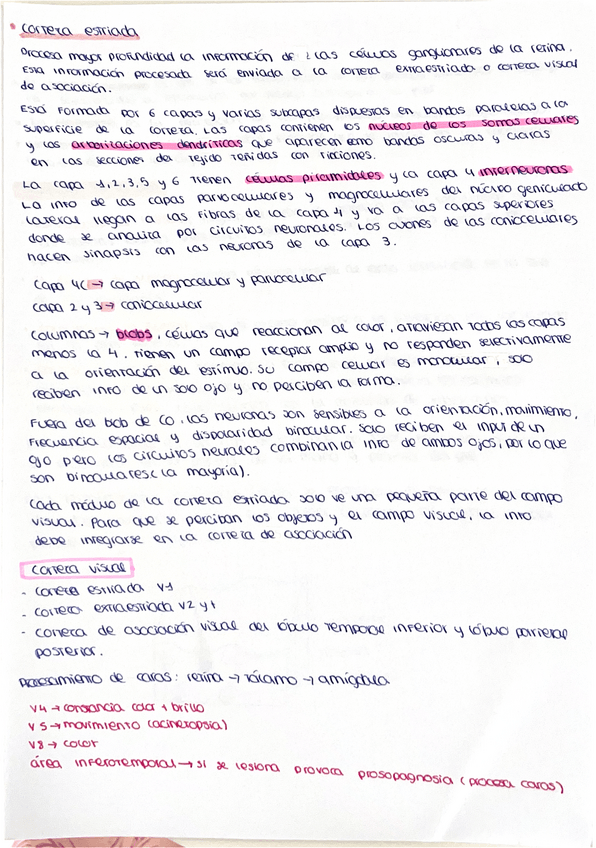 • Corteza estriada
Procesa mayor profundidad la información de las células ganglionares de la retina.
Esta información procesada será enviada a la corteza extraestriada o corteza visual
de asociación.
Está formada por 6 capas y varias subcapas dispuestas en bandas paralelas a la
superficie de la corteza. Las capas contienen los núcleos de los somas celulares
y las arborizaciones dendríticas que aparecen como bandas oscuras y claras
en las secciones del tejido teñidas con tinciones.
La capa 1, 2, 3, 5 y 6 tienen células piramidales y la capa 4 interneuronas
La info de las capas parvocelulares y magnocelulares del núcleo geniculado
lateral llegan a las fibras de la capa 4 y va a las capas superiores
donde se analiza por circuitos neuronales. Los axones de las coniocelulares
hacen sinapsis con las neuronas de la capa 3.
Capa 4C → capa magnocelular y parvocelular
capa 2 y 3 → coniocelular
Columnas → blobs, células que reaccionan al color, atraviesan todas las capas
menos la 4. Tienen un campo receptor amplio y no responden selectivamente
a la orientación del estímulo. Su campo celular es monocular, solo
reciben info de un solo ojo y no perciben la forma.
Fuera del blob de CO, las neuronas son sensibles a la orientación, movimiento,
frecuencia espacial y disparidad binocular. Solo reciben el input de un
ojo pero los circuitos neurales combinan la info de ambos ojos, por lo que
son binoculares (la mayoría).
Cada módulo de la corteza estriada solo ve una pequeña parte del campo
visual. Para que se perciban los objetos y el campo visual, la info
debe integrarse en la corteza de asociación
Corteza visual
- corteza estriada V1
- corteza extraestriada V2 y +
- corteza de asociación visual del lóbulo temporal inferior y lóbulo parietal
posterior.
Procesamiento de caras: retina → tálamo → amígdala
V4 → constancia color + brillo
V5 → movimiento (acinetopsia)
V8 → color
área inferotemporal → si se lesiona provoca prosopagnosia (procesa caras)